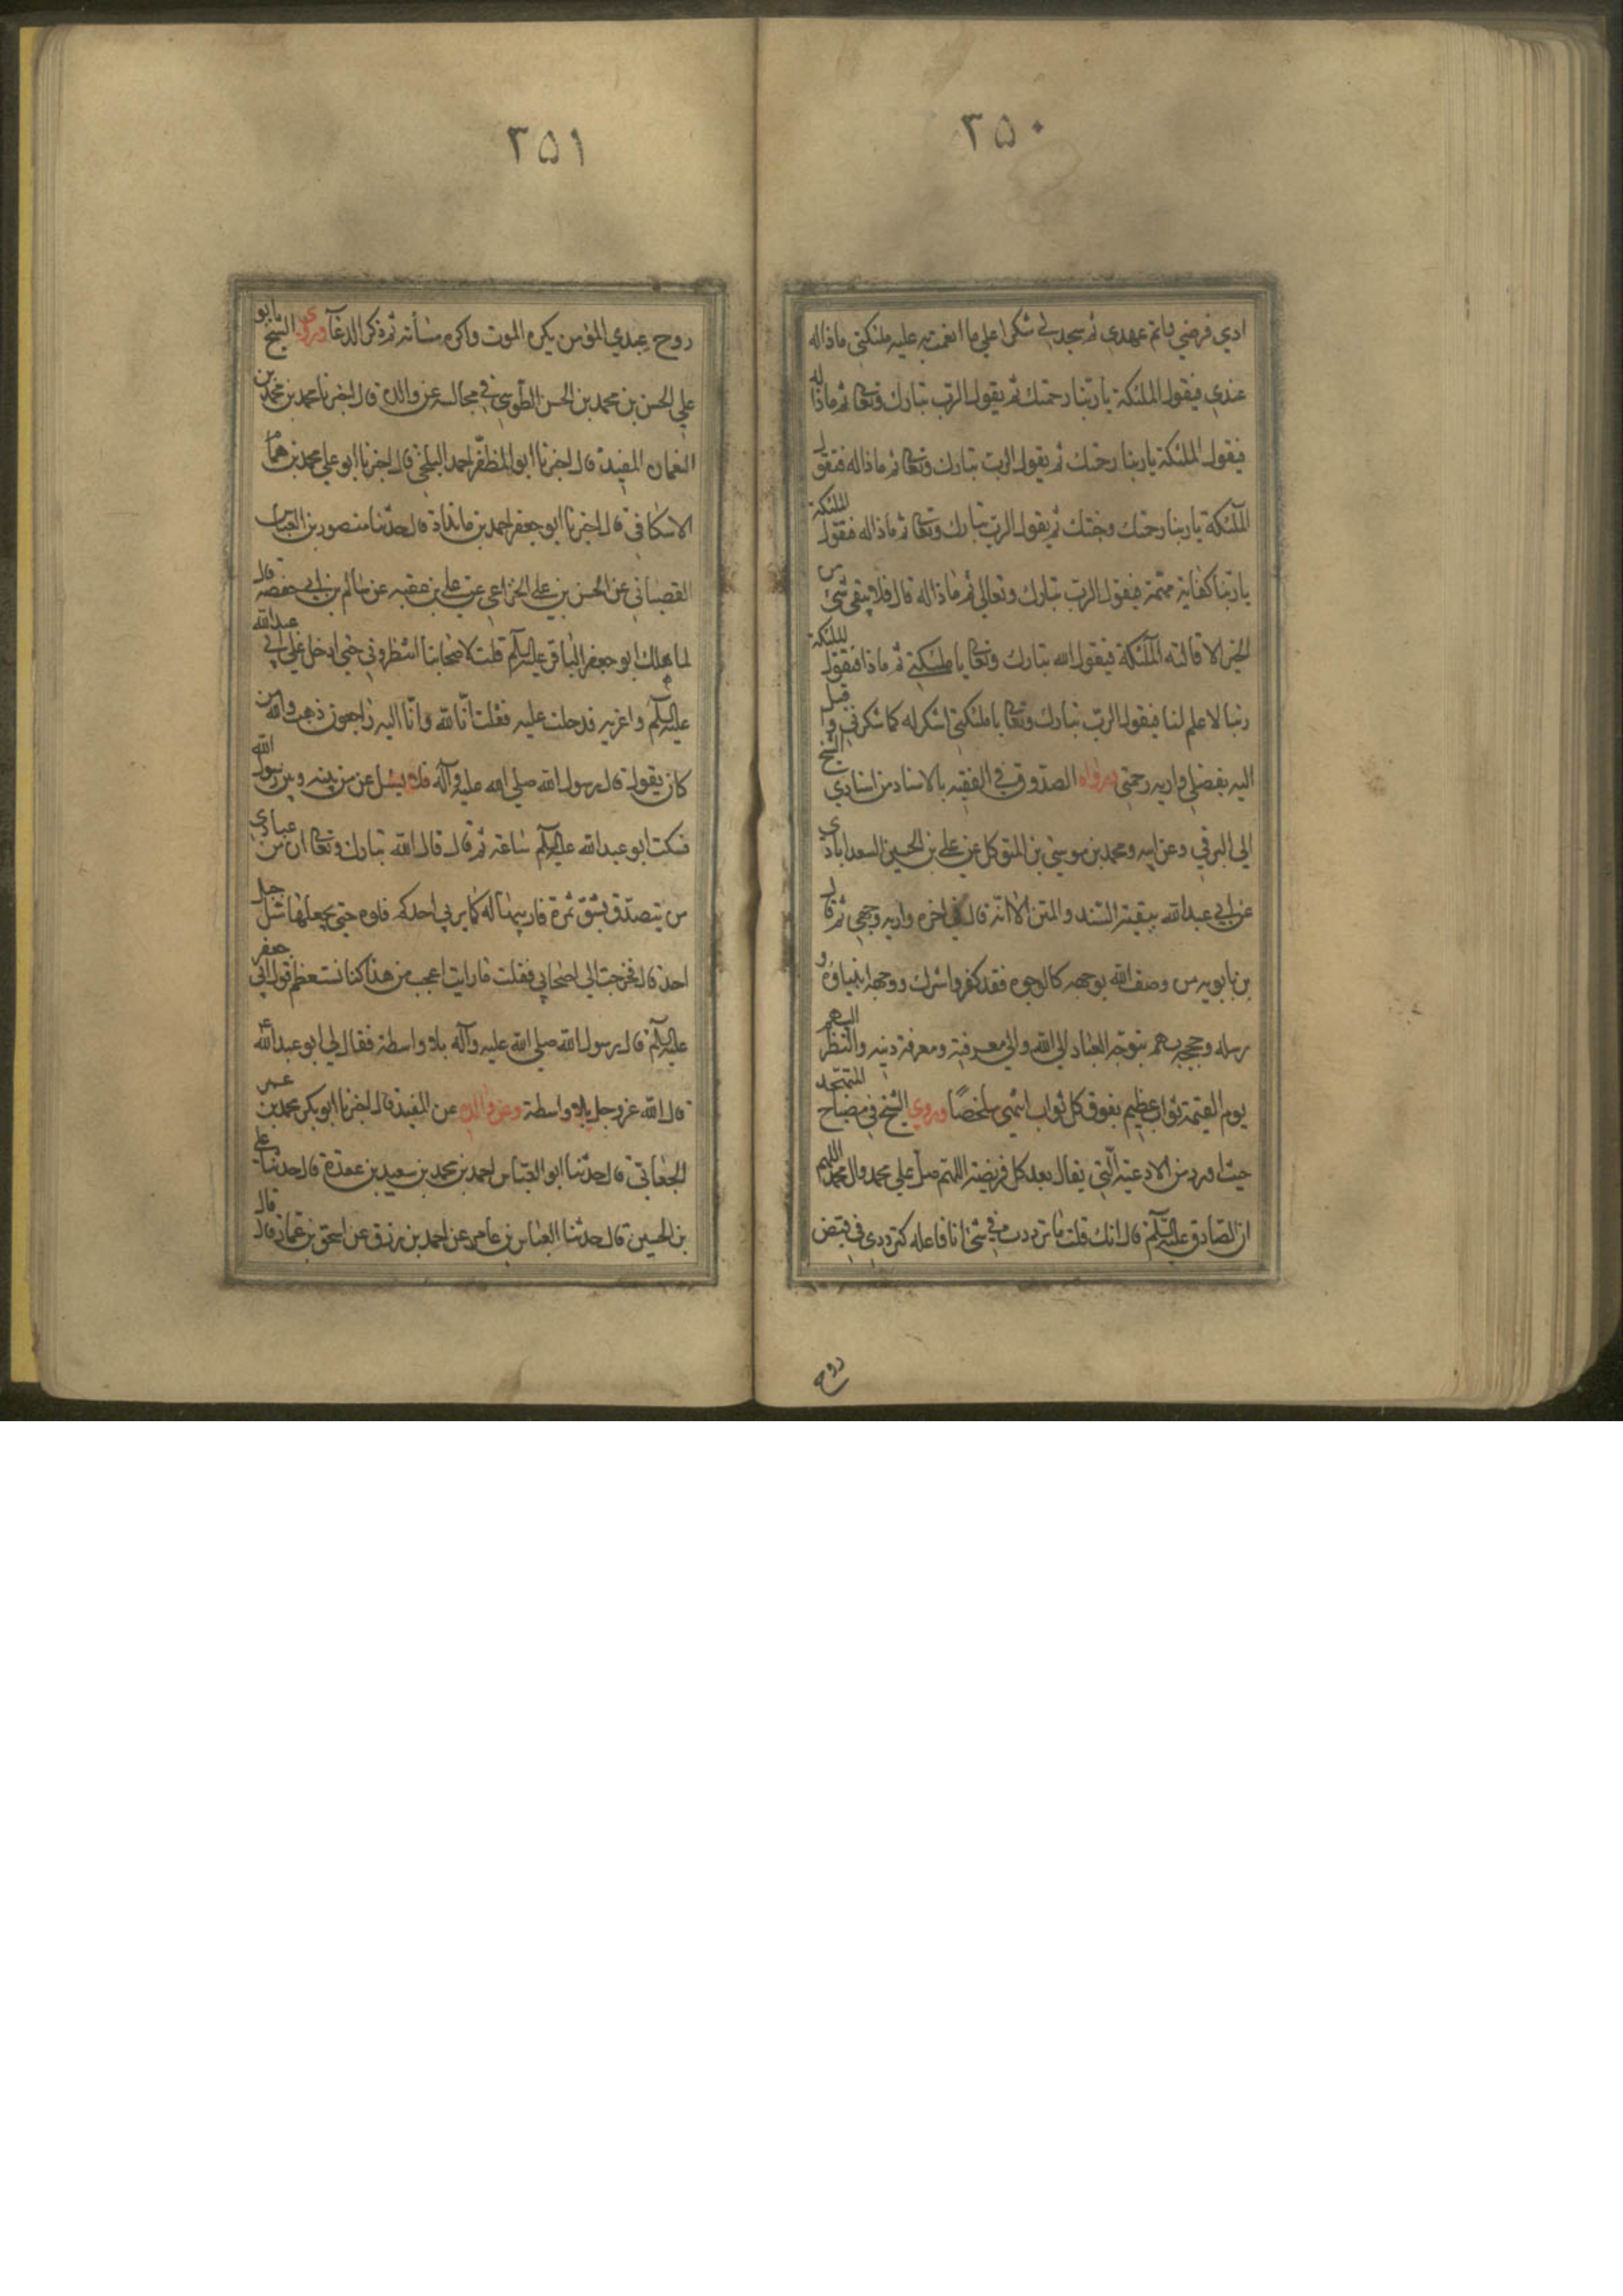 ٣٥٠
ادي فرضي واتم عهدي ثم سجد لي شكرا علي ما انعمت به عليه ملئكتي ماذا له
عندي فيقول الملئكة يا ربنا رحمتك ثم يقول الرب تبارك وتعا ثم ماذا له
فيقول الملئكة يا ربنا جنتك ثم يقول الرب تبارك وتعا ثم ماذا له فتقول
الملئكة يا ربنا رحمتك وجنتك ثم يقول الرب تبارك وتعا ثم ماذا له فتقول الملئكة
يا ربنا كفاية مهمة فيقول الرب تبارك وتعالي ثم ماذا له قال فلا يبقي شئ من
الخير الا قالته الملئكة فيقول الله تبارك وتعا يا ملئكتي ثم ماذا فتقول الملئكة
ربنا لا علم لنا فيقول الرب تبارك وتعا يا ملئكتي اشكر له كما شكرني واقبل
اليه بفضلي واريه رحمتي ورواه الشيخ الصدوق في الفقيه بالاسناد من اسنادي
الي البرقي وعن ابيه ومحمد بن موسي بن المتوكل عن علي بن الحسين السعدابادي
عن ابي عبدالله ببقية السند والمتن الا انه قال في اخره واريه وجهي ثم قال
بن بابويه من وصف الله بوجهه كالوجوه فقد كفر واشرك ووجهه انبياؤه و
رسله وحججه بهم يتوجه العباد الي الله والي معرفته ومعرفة دينه والنظر اليهم
يوم القيمة ثواب عظيم يفوق كل ثواب انتهي ملخصًا وروي الشيخ في مصباح المتهجد
حيث اورد من الادعية التي يقال بعد كل فريضة اللهم صل علي محمد وال محمد اللهم
ان الصادق عليه السلم قال انك قلت ما ترددت في شئ انا فاعله كترددي في قبض
روح
٣٥١
روح عبدي المؤمن يكره الموت واكره مسأته ثم ذكر الدعآ وروي الشيخ ابو
علي الحسن بن محمد بن الحسن الطوسي في مجالسه عن والده قال اخبرنا محمد بن محمد بن
النعمان المفيد قال اخبرنا ابو المظفر احمد البلخي قال اخبرنا ابو علي محمد بن همام
الاسكافي قال اخبرنا ابو جعفر احمد بن مابنداد قال حدثنا منصور بن العباس
القصباني عن الحسن بن علي الخزاعي عن علي بن عقبه عن سالم بن ابي حفصه قال
لما هلك ابو جعفر الباقر عليه السلم قلت لاصحابنا انتظروني حتي ادخل علي ابي عبدالله
عليه السلم واعزيه فدخلت عليه فقلت انا لله وانا اليه راجعون ذهب والله من
كان يقول قال رسول الله صلي الله عليه وآله فلا يسئل عن من بينه وبين رسول الله
فسكت ابو عبدالله عليه السلم ساعة ثم قال قال الله تبارك وتعا ان من عبادي
من يتصدق بشق تمرة فاربيها له كما يربي احدكم فلوه حتي يجعلها مثل جبل
احد قال فخرجت الي اصحابي فقلت ما رايت اعجب من هذا كنا نستعظم قول ابي جعفر
عليه السلم قال رسول الله صلي الله عليه وآله بلا واسطة فقال لي ابو عبدالله ع
قال الله عز وجل بلا واسطة وعن والده عن المفيد قال اخبرنا ابو بكر محمد بن عمر
الجعابي قال حدثنا ابو العباس احمد بن محمد بن سعيد بن عقدة قال حدثنا علي
بن الحسين قال حدثنا العباس بن عامر عن احمد بن رزق عن اسحق بن عمار قال قال